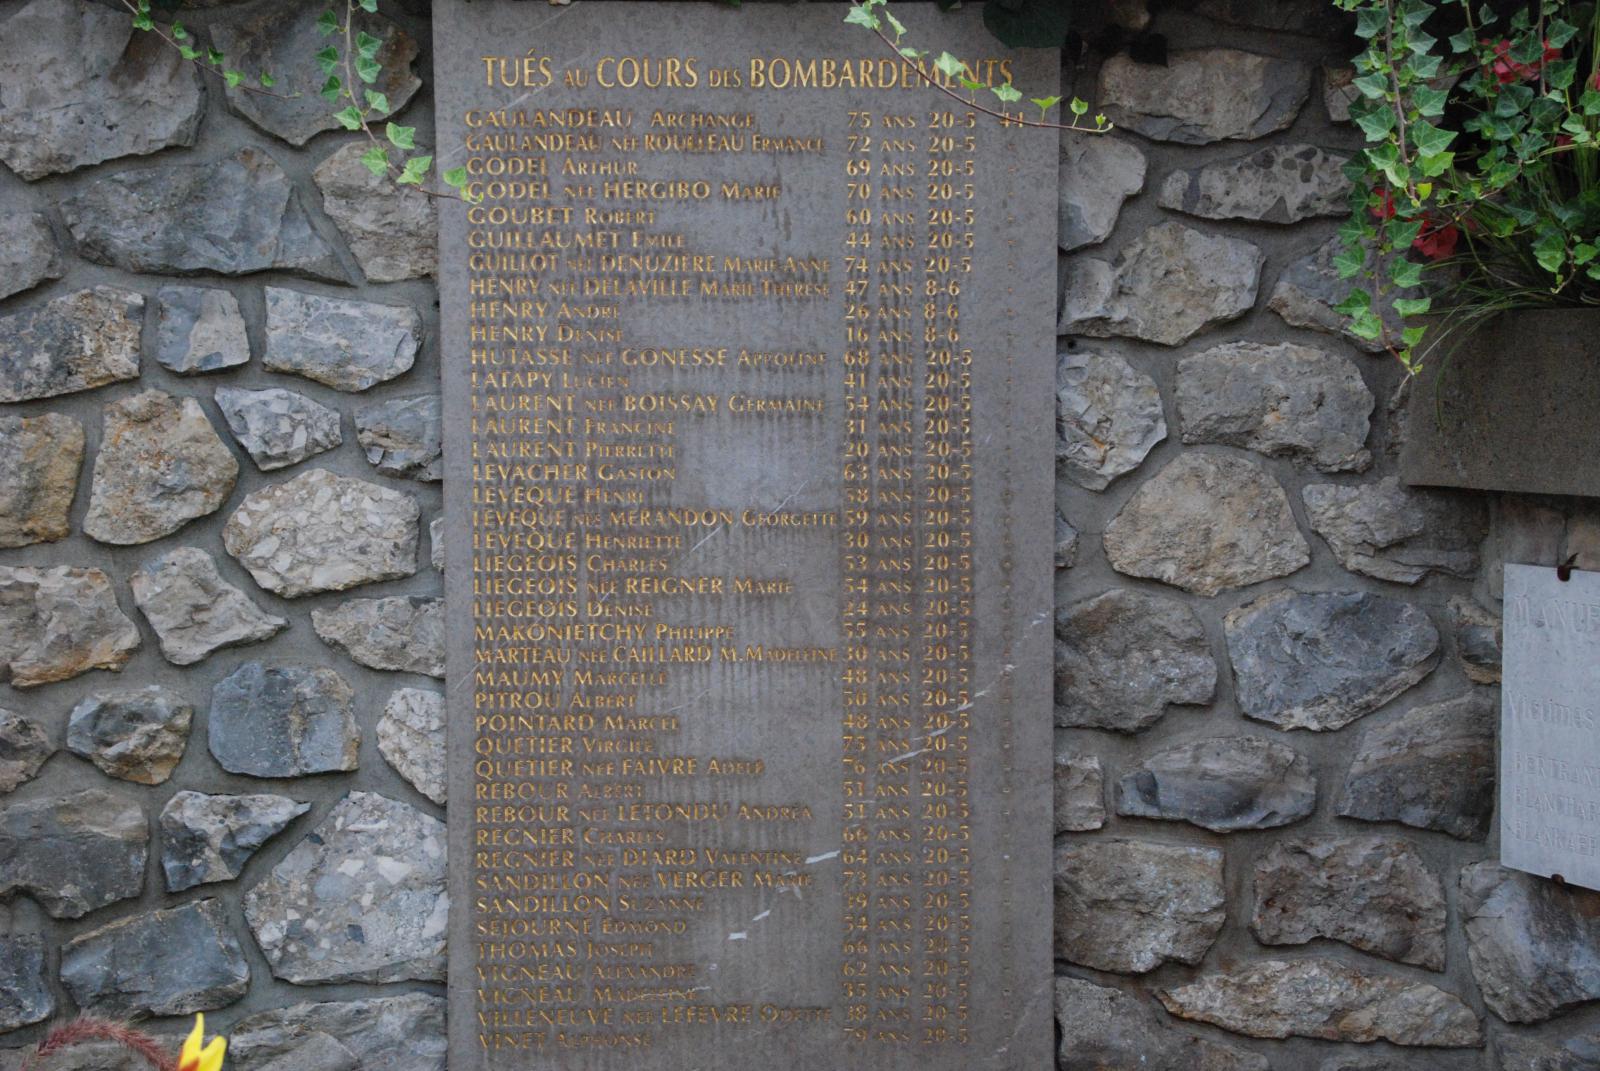 TUÉS AU COURS DES BOMBARDEMENTS
GAULANDEAU ARCHANGE 75 ANS 20-5 44
GAULANDEAU NÉE ROULLEAU ERMANCE 72 ANS 20-5 -
GODEL ARTHUR 69 ANS 20-5 -
GODEL NÉE HERGIBO MARIE 70 ANS 20-5 -
GOUBET ROBERT 60 ANS 20-5 -
GUILLAUMET EMILE 44 ANS 20-5 -
GUILLOT NÉE DENUZIÈRE MARIE-ANNE 74 ANS 20-5 -
HENRY NÉE DELAVILLE MARIE-THÉRÈSE 47 ANS 8-6 -
HENRY ANDRÉ 26 ANS 8-6 -
HENRY DENISE 16 ANS 8-6 -
HUTASSE NÉE GONESSE APPOLINE 68 ANS 20-5 -
LATAPY LUCIEN 41 ANS 20-5 -
LAURENT NÉE BOISSAY GERMAINE 54 ANS 20-5 -
LAURENT FRANCINE 31 ANS 20-5 -
LAURENT PIERRETTE 20 ANS 20-5 -
LEVACHER GASTON 63 ANS 20-5 -
LEVEQUE HENRI 58 ANS 20-5 -
LEVEQUE NÉE MÉRANDON GEORGETTE 59 ANS 20-5 -
LEVEQUE HENRIETTE 30 ANS 20-5 -
LIEGEOIS CHARLES 53 ANS 20-5 -
LIEGEOIS NÉE REIGNER MARIE 54 ANS 20-5 -
LIEGEOIS DENISE 24 ANS 20-5 -
MAKONIETCHY PHILIPPE 55 ANS 20-5 -
MARTEAU NÉE CAILLARD M.MADELEINE 30 ANS 20-5 -
MAUMY MARCELLE 48 ANS 20-5 -
PITROU ALBERT 50 ANS 20-5 -
POINTARD MARCEL 48 ANS 20-5 -
QUETIER VIRGILE 75 ANS 20-5 -
QUETIER NÉE FAIVRE ADELE 76 ANS 20-5 -
REBOUR ALBERT 51 ANS 20-5 -
REBOUR NÉE LETONDU ANDREA 51 ANS 20-5 -
REGNIER CHARLES 66 ANS 20-5 -
REGNIER NÉE DIARD VALENTINE 64 ANS 20-5 -
SANDILLON NÉE VERGER MARIE 73 ANS 20-5 -
SANDILLON SUZANNE 39 ANS 20-5 -
SEJOURNE EDMOND 54 ANS 20-5 -
THOMAS JOSEPH 66 ANS 20-5 -
VIGNEAU ALEXANDRE 62 ANS 20-5 -
VIGNEAU MADELEINE 35 ANS 20-5 -
VILLENEUVE NÉE LEFEVRE ODETTE 38 ANS 20-5 -
VINET ALPHONSE 79 ANS 20-5
MANUE
Victimes
BERTRAN
BLANCHAR
BLANKAER